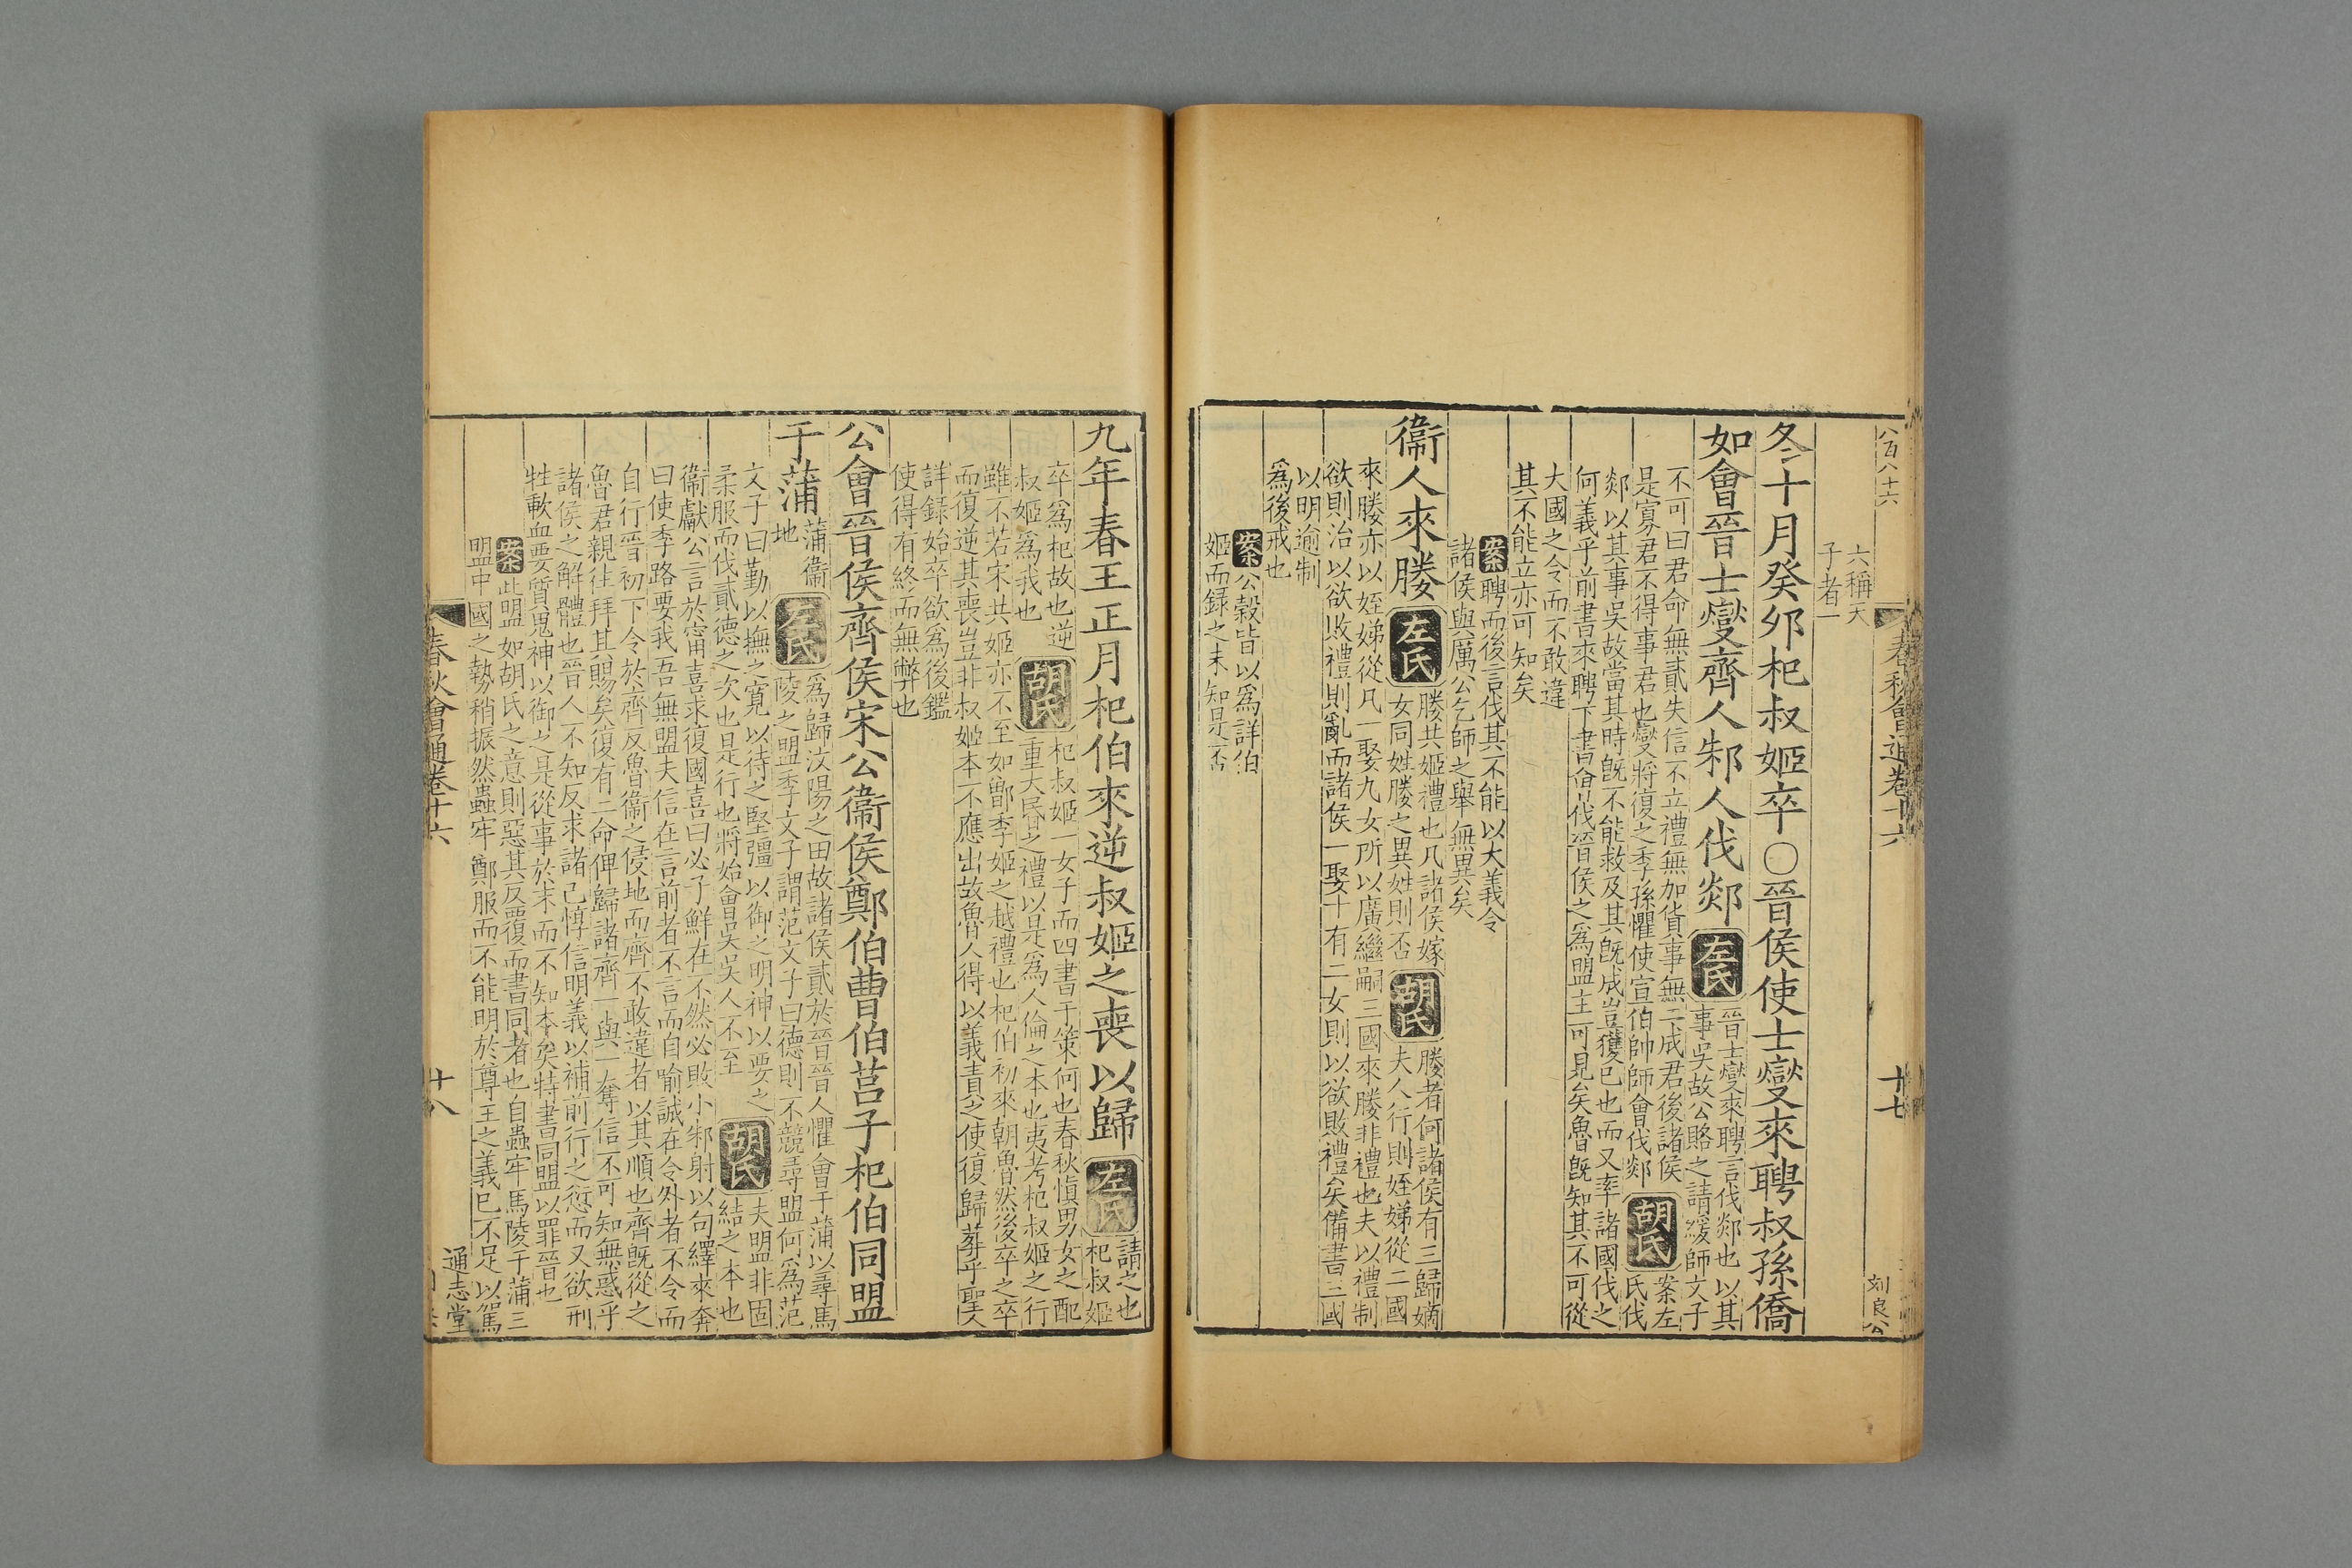 八百八十六
春秋會通卷十六
十七
刻良公
六稱天
子者一
冬十月癸卯杞叔姬卒○晉侯使士燮來聘叔孫僑
如會晉士燮齊人邾人伐郯
左氏
晉士燮來聘言伐郯也以其
事吳故公賂之請緩師文子
不可曰君命無貳失信不立禮無加貨事無二成君後諸侯
是寡君不得事君也燮將復之季孫懼使宣伯帥師會伐郯
胡氏
案左
氏伐
郯以其事吳故當其時旣不能救及其旣成豈獲已也而又率諸國伐之
何義乎前書來聘下書會伐晉侯之爲盟主可見矣魯旣知其不可從
大國之令而不敢違
其不能立亦可知矣
案
聘而後言伐其不能以大義令
諸侯與厲公乞師之舉無異矣
衞人來媵
左氏
媵共姬禮也凡諸侯嫁
女同姓媵之異姓則否
胡氏
媵者何諸侯有三歸嫡
夫人行則姪娣從二國
來媵亦以姪娣從凡一娶九女所以廣繼嗣三國來媵非禮也夫以禮制
欲則治以欲敗禮則亂而諸侯一娶十有二女則以欲敗禮矣備書三國
以明逾制
爲後戒也
案
公穀皆以爲詳伯
姬而録之未知是否
九年春王正月杞伯來逆叔姬之喪以歸
左氏
請之也
杞叔姬
卒爲杞故也逆
叔姬爲我也
胡氏
杞叔姬一女子而四書于策何也春秋愼男女之配
重大昏之禮以是爲人倫之本也夷考杞叔姬之行
雖不若宋共姬亦不至如鄫季姬之越禮也杞伯初來朝魯然後卒之卒
而復逆其喪豈非叔姬本不應出故魯人得以義責之使復歸葬乎聖人
詳録始卒欲爲後鑑
使得有終而無弊也
公會晉侯齊侯宋公衞侯鄭伯曹伯莒子杞伯同盟
于蒲
蒲衞
地
左氏
爲歸汶陽之田故諸侯貳於晉晉人懼會于蒲以尋馬
陵之盟季文子謂范文子曰德則不競尋盟何爲范
文子曰勤以撫之寛以待之堅彊以御之明神以要之
柔服而伐貳德之次也是行也將始會吳吳人不至
胡氏
夫盟非固
結之本也
衞獻公言於甯喜求復國喜曰必子鮮在不然必敗小邾射以句繹來奔
曰使季路要我吾無盟夫信在言前者不言而自喻誠在令外者不令而
自行晉初下令於齊反魯衞之侵地而齊不敢違者以其順也齊旣從之
魯君親往拜其賜矣復有二命俾歸諸齊一與一奪信不可知無惑乎
諸侯之解體也晉人不知反求諸己惇信明義以補前行之愆而又欲刑
牲歃血要質鬼神以御之是從事於末而不知本矣特書同盟以罪晉也
案
此盟如胡氏之意則惡其反覆而書同者也自蟲牢馬陵于蒲三
盟中國之勢稍振然蟲牢鄭服而不能明於尊王之義已不足以駕
春秋會通卷十六
十八
通志堂